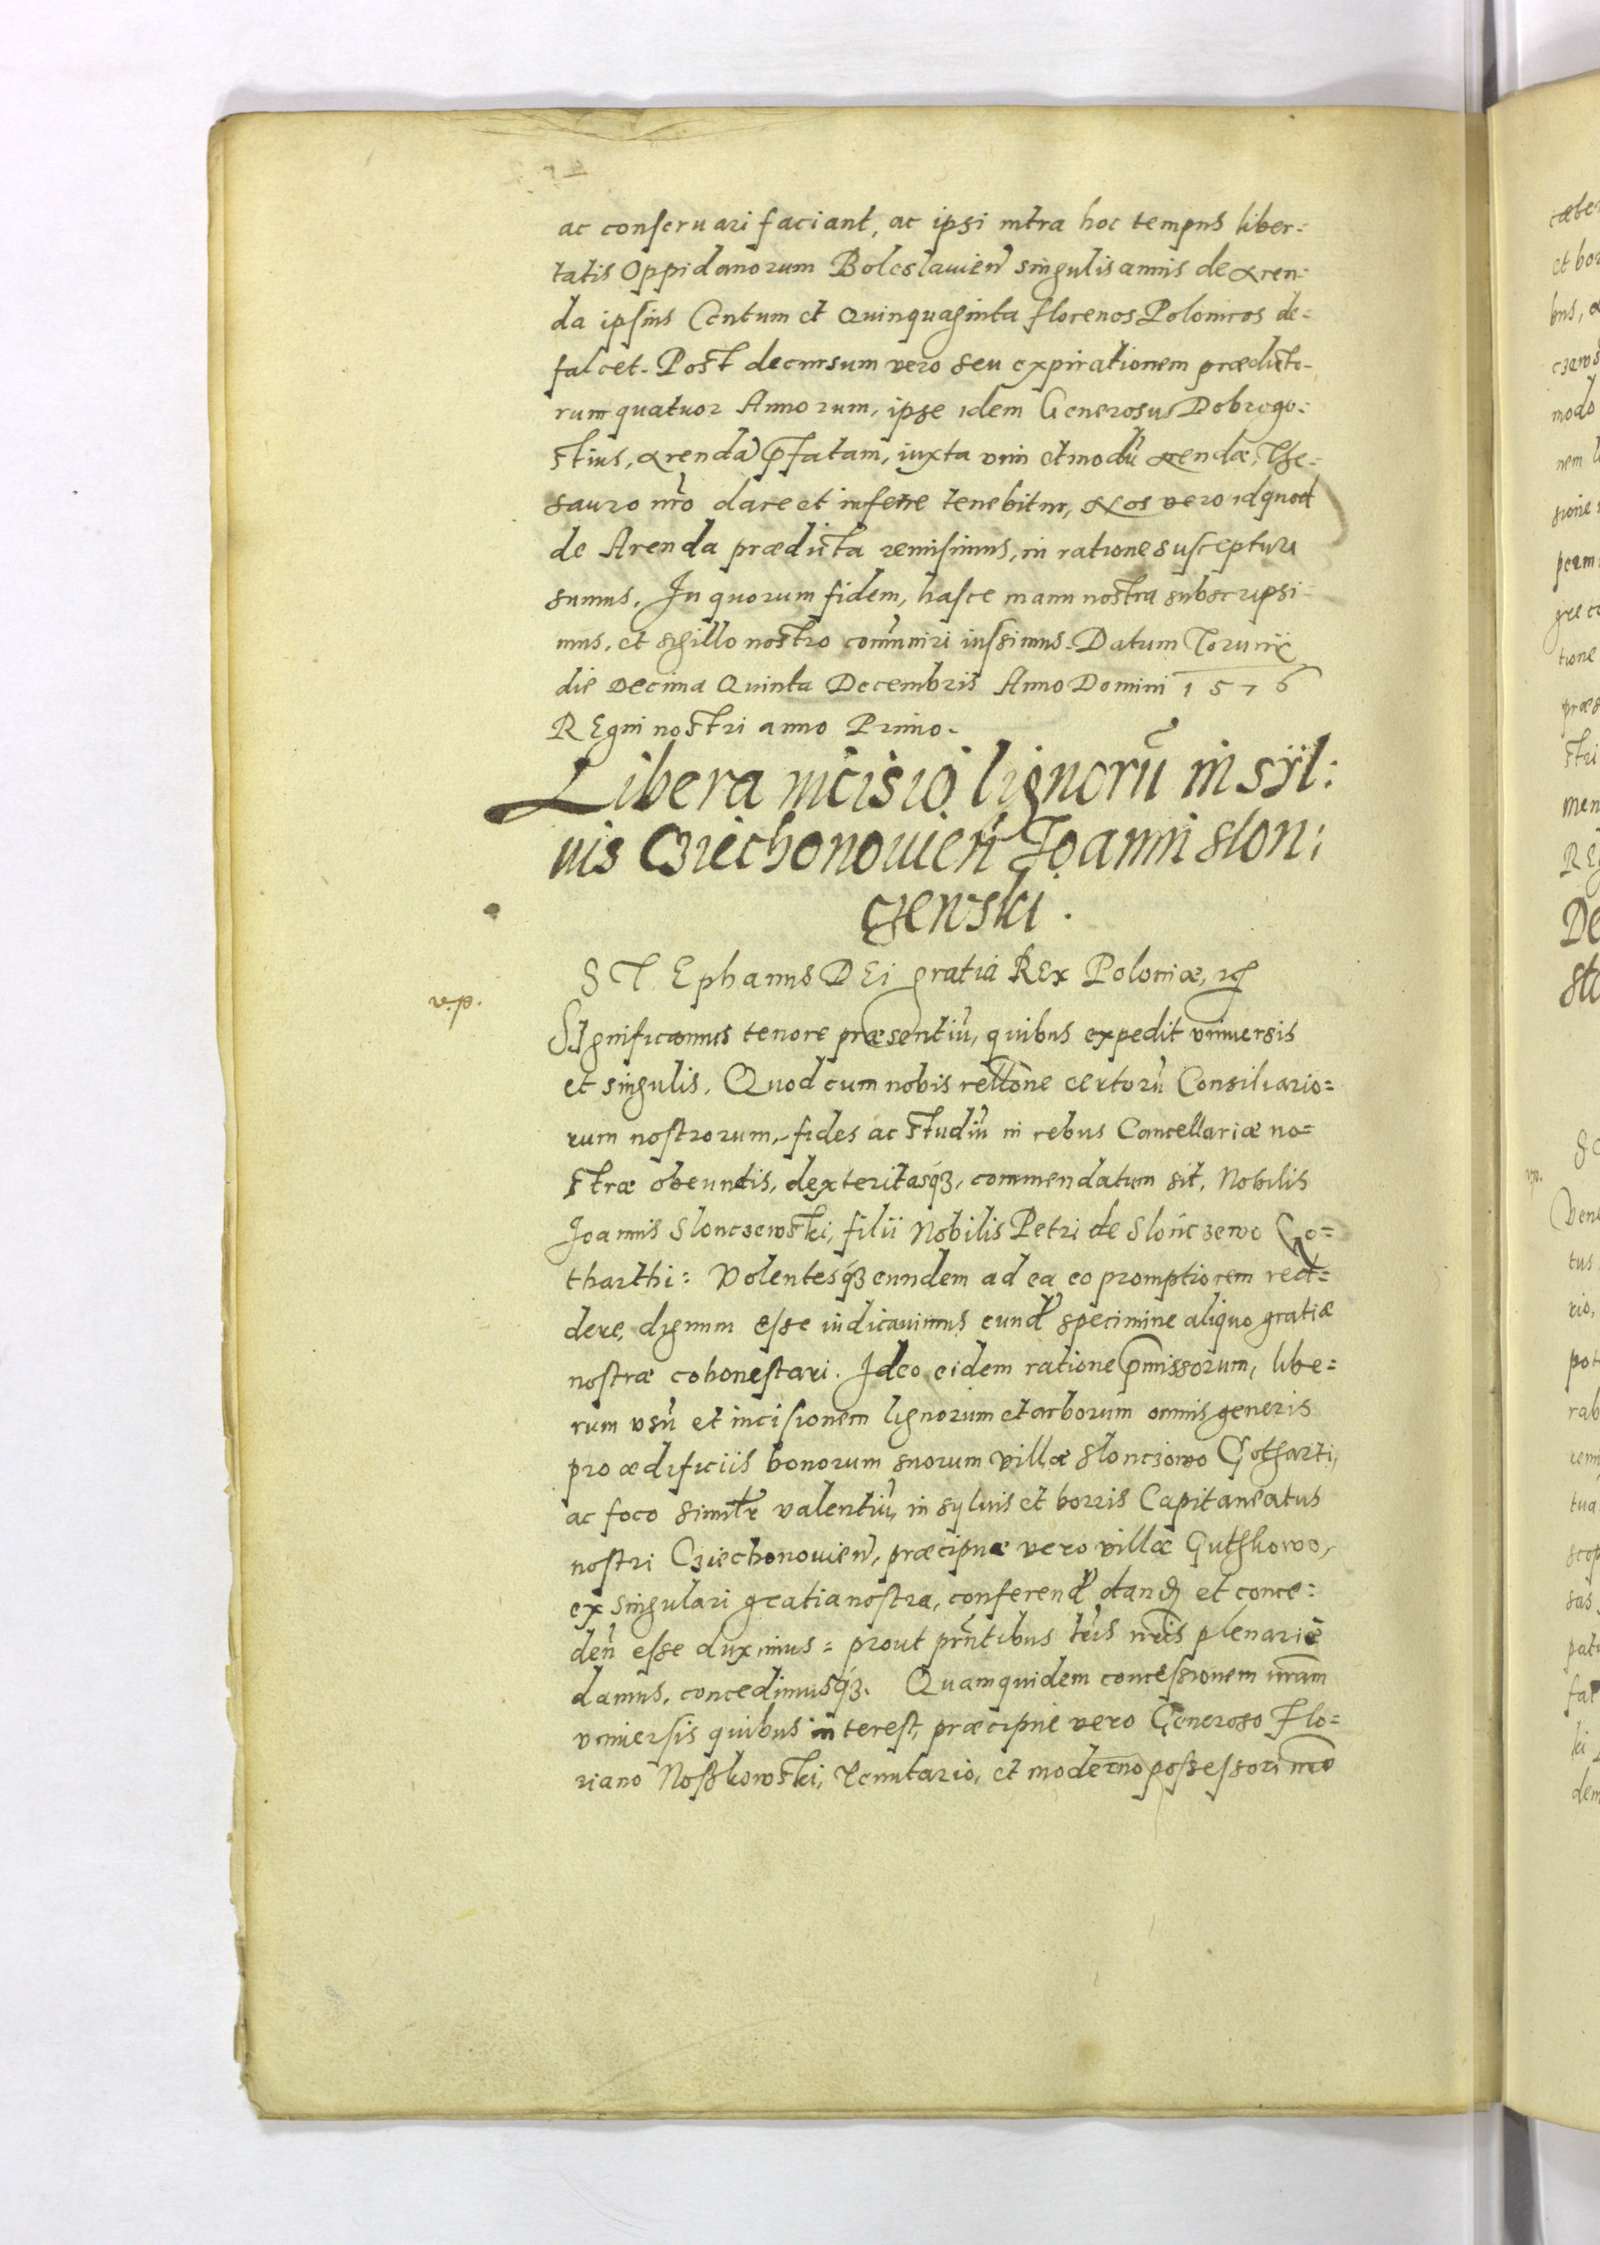 ac conseruari faciant, ac ipsi intra hoc tempus liber=
tatis Oppidanorum Boleslauien̄ singulis annis de aren=
da ipsius Centum et Quinquaginta florenos Polonicos de=
falcet. Post decursum vero seu expirationem prædicto-
rum quatuor Annorum, ipse idem Generosus Dobrogo=
stius, arendā p̄fatam, iuxta vim et modū arendæ, The=
sauro nr̄o dare et inferre tenebitur, Nos vero id quod
de Arenda prædicta remisimus, in ratione suscepturi
sumus. In quorum fidem, hasce manu nostra subscripsi-
mus, et sigillo nostro com̄uniri iussimus. Datum Torunij
die Decima Quinta Decembris Anno Domini 1576
REgni nostri anno Primo.
Libera incisio lignorū in syl:
uis Cziechonouien̄ Joanni Slon:
czewski.
v.p.
STEphanus DEi gratia REx Poloniæ, ꝛc̄
Significamus tenore præsentiū, quibus expedit vniuersis
et singulis. Quod cum nobis rell̄one certorū Consiliario=
rum nostrorum, fides ac studiū in rebus Cancellariæ no=
stræ obeundis, dexteritasq́3, commendatum sit, Nobilis
Joannis Slonczewski, filii Nobilis Petri de Slończewo Go=
tharthi: Volentesq́3 eundem ad ea eo promptiorem red=
dere, dignum esse iudicauimus eund̄ specimine aliquo gratiæ
nostræ cohonestari. Ideo eidem ratione p̄missorum, libe=
rum vsū et incisionem lignorum et arborum omnis generis
pro ædificiis bonorum suorum villæ Slonczowo Gotharti,
ac foco simil̄r valentiū, in syluis et borris Capitaneatus
nostri Cziechonouien̄, præcipuæ vero villæ Guthkowo,
ex singulari gratia nostra, conferend̄ dand̄ et conce=
den̄ esse duximus: prout pn̄tibus lr̄is nr̄is plenariè
damus, concedimusq́3. Quamquidem concessionem nr̄am
vniuersis quibus interest, præcipue vero Generoso Flo=
riano Noskowski, Tenutario, et moderno possessori nr̄o